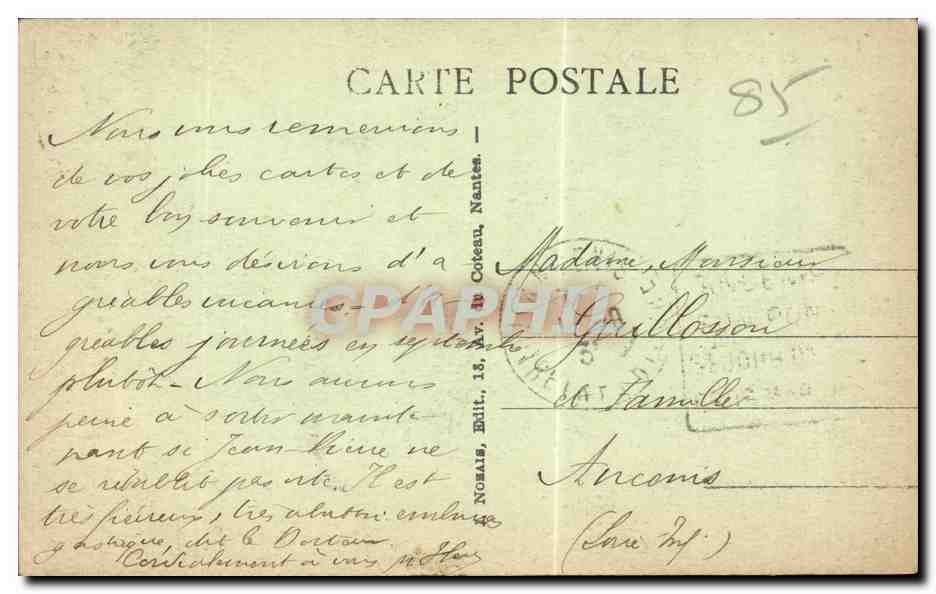 CARTE POSTALE
85
Nous vous remercions
de vos jolies cartes et de
votre bon souvenir et
nous vous désirons d'a
gréables vacances -
gréables journées en septembre
plutôt - Nous aurons
peine à sortir mainte
nant si Jean-Pierre ne
se rétablit pas vite. Il est
très fiévreux, très abattu embarras
gastrique, dit le Docteur.
Cordialement à vous
Nozais, Edit., 18, Av. du Coteau, Nantes. -
Madame, Monsieur
Goullosson
et Famille
Ancenis
(Loire Inf.)
CPAPHIL